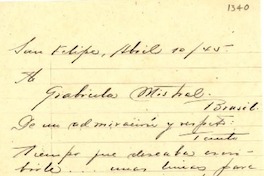 1340
San Felipe, Abril 10/45
A
Gabriela Mistral.
Brasil.
De mi admiración y respeto:
Tanto
tiempo que deseaba escri-
birle.... unas líneas para